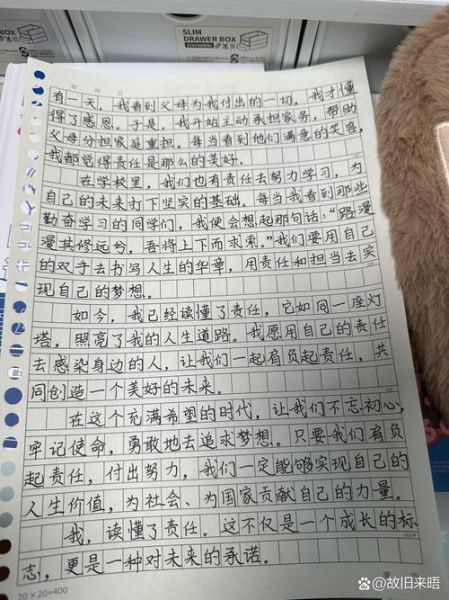 SLIM
DRAWER BOX
年 月 日
有一天，我看到父母为我付出的一切，我才懂
得了感恩。于是，我开始主动承担家务，帮助
父母分担家庭重担。每当看到他们满意的笑容，
我都觉得责任是那么的美好。
在学校里，我们也有责任去努力学习，为
自己的未来打下坚实的基础。每当我看到那些
勤奋学习的同学们，我便会想起那句话：“路漫
漫其修远兮，吾将上下而求索。”我们要用自己
的双手去书写人生的华章，用责任和担当去实
现自己的梦想。
如今，我已经读懂了责任，它如同一座灯
塔，照亮了我的人生道路。我愿用自己的责任
去感染身边的人，让我们一起肩负起责任，共
同创造一个美好的未来。
在这个充满希望的时代，让我们不忘初心，
牢记使命，勇敢地去追求梦想。只要我们肩负
起责任，付出努力，我们一定能够实现自己的
人生价值，为社会、为国家贡献自己的力量。
我，读懂了责任。这不仅是一个成长的标
志，更是一种对未来的承诺。
20×20=400
@故旧来晤